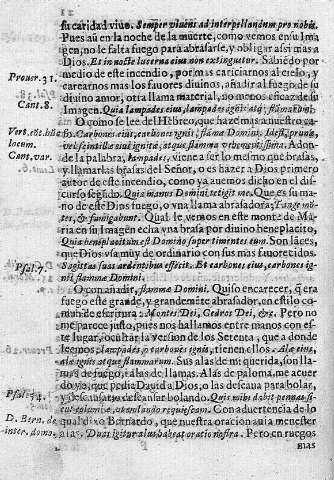 su caridad viuo. Semper viuens ad interpellandum pro nobis.
Pues aũ en la noche de la muerte, como vemos en su Ima
gen, no le falta fuego para abrasarse, y obligar assi mas a
Dios. Et in nocte lucerna eius non extinguetur. Sabiẽdo por
Prouer. 31.
medio de este incendio, por mas cariciarnos al cielo, y a
carearnos mas los fauores diuinos, añadir al fuego de su
Cant. 8.
diuino amor, otra llama material, no menos eficaz de su
Imagen. Quia lampades eius, lampades ignis atq; flammarũ.
O como se lee del Hebreo, que haze mas a nuestro ca
so. Carbones eius, carbones ignis, flãma Domini. Idest, prunæ,
locum.
vel scintilla eius ignita, atque flamma vehementissima. A don-
Cant. var.
de la palabra, lampades, viene a ser lo mesmo que brasas,
y llamarlas brasas del Señor, o es hazer a Dios primero
autor de este incendio, como ya auemos dicho en el dis
curso segũdo. Quia manus Domini tetigit me. Que es su ma
no de este Dios fuego, o vna llama abrasadora; Tange mõ
tes, & fumigabunt. Qual le vemos en este monte de Ma
ria en su Imagen echa vna brasa por diuino beneplacito,
Quia beneplacitum est Domino super timentes eum. Son laces,
que Dios vsa muy de ordinario con sus mas fauorecidos.
Psal. 7.
Sagittas suas ardentibus effecit. Et carbones eius, carbones ig-
nis flammæ Domini.
O con añadir, flammæ Domini. Quiso encarecer, q̃ era
fuego este grande, y grandemẽte abrasador, en estilo co
mun de escritura: Montes Dei, Cedros Dei, &c. Pero no
me parece justo, pues nos hallamos entre manos con es-
te lugar, ocultar la version de los Setenta, que a donde
leemos, lampades, y carbones ignis, tienen ellos. Alæ eius,
alæ ignis atque flammarum. Sus alas de mi querida, son lla-
mas de fuego, alas de llamas. Alas de paloma, me acuer
do yo, que pedia Dauid a Dios, o las deseaua para bolar,
Psal. 54.
y descansar, o descansar bolando. Quis mihi dabit pennas si-
cut columbæ, & volabo & requiescam. Con aduertencia de lo
D. Bern. de
qual dixo Bernardo, que nuestra oracion aui a menester
inter. domo
alas. Duni igitur alas habeat oratio nostra. Pero en ruegos
mas